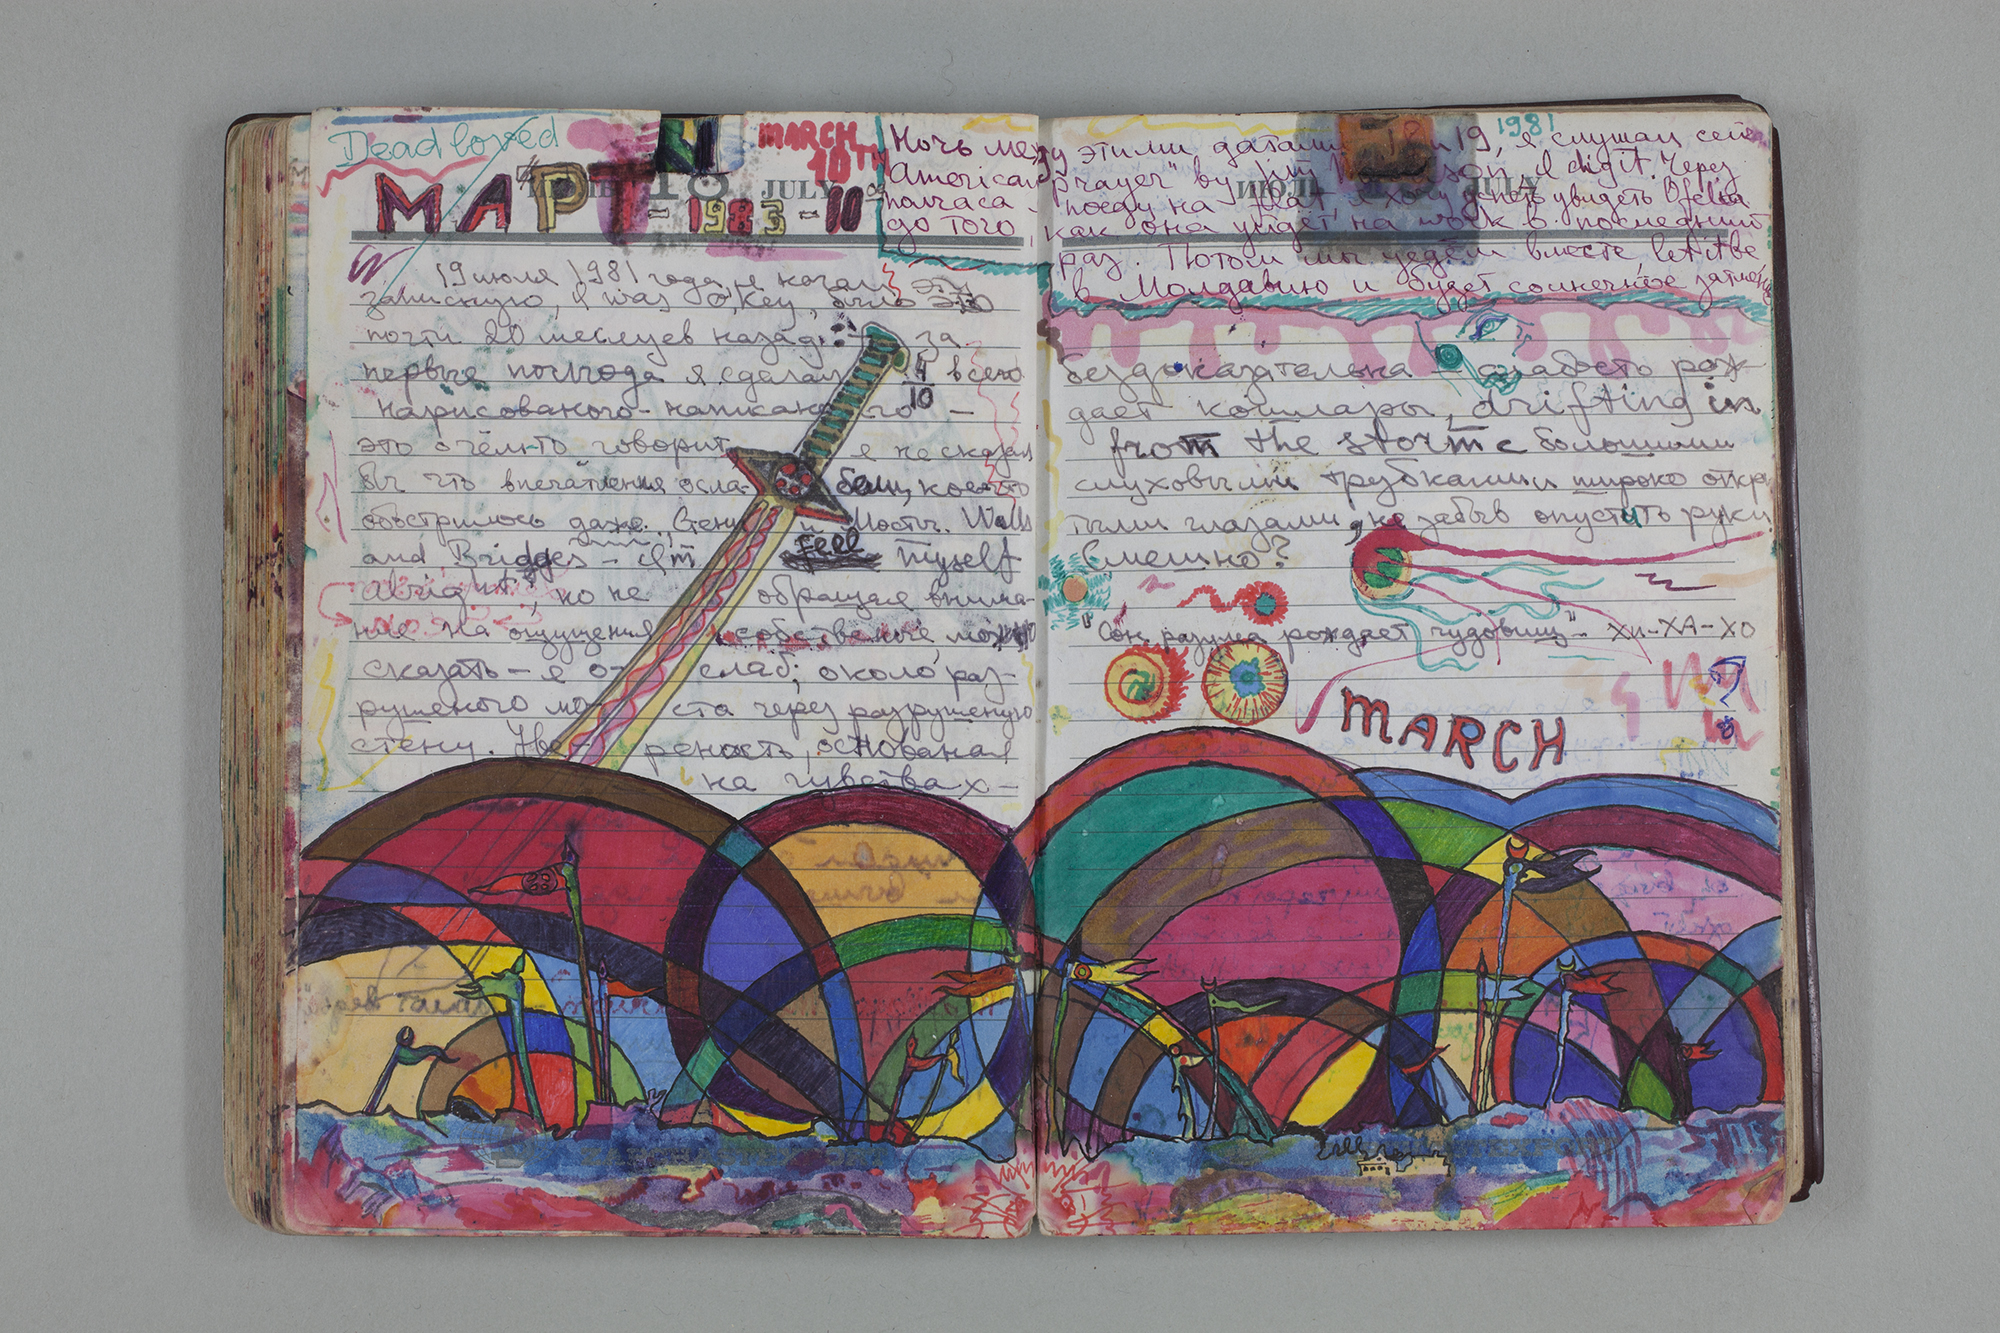 Dead loved
МАРТ - 1983 - 10
MARCH
10TH
18 JULY
ИЮЛЬ JULY
1981
Ночь между этими датами 18 и 19, я слушал сейч
American prayer" by Jim Morrison, I digit. Через
полчаса - поеду на flat, я хочу успеть увидеть Ofelia
до того, как она уйдёт на work в последний
раз. Потом мы уедем вместе let it be
в Молдавию и будет солнечное затме
19 июля 1981 года, я начал эту
записную, I was o'key, было это
почти 20 месяцев назад: за
первые полгода я сделал 4/10 всего
нарисованого-написаного —
это о чём-то говорит я не сказал
бы что впечатления осла- бели, кое-что
обострилось даже. Стены и Мосты. Walls
and Bridges - I'm feel myself
alright, но не обращая внима-
ние на ощущения собственые, можно
сказать - я ослаб; около раз-
рушеного моста через разрушеную
стену. Уве- реность, основаная
на чувствах -
бездоказательна - слабость рож-
дает кошмары, drifting in
from the storm с большими
слуховыми трубками и широко откры
тыми глазами, не забыв опустить руки
Смешно?
"Сон разума рождает чудовищ" - ХИ-ХА-ХО
MARCH